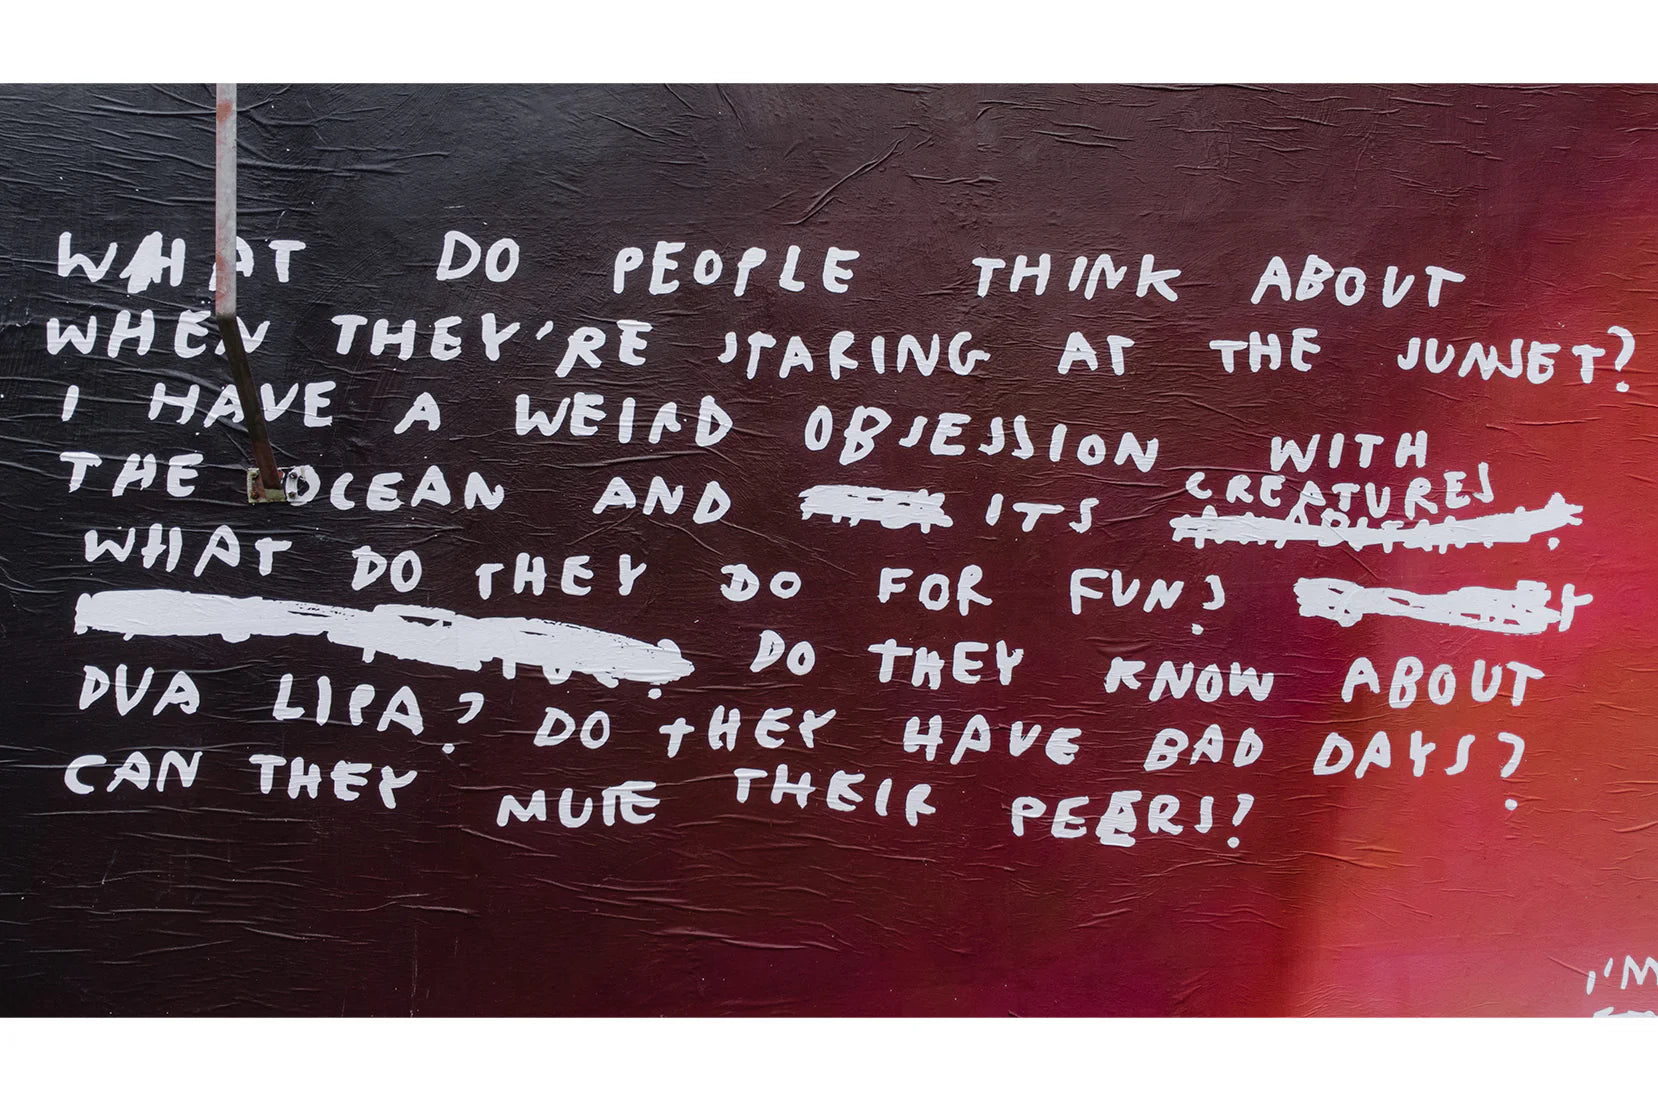 WHAT DO PEOPLE THINK ABOUT
WHEN THEY'RE STARING AT THE SUNSET?
I HAVE A WEIRD OBSESSION WITH
THE OCEAN AND ITS CREATURES
WHAT DO THEY DO FOR FUN?
DO THEY KNOW ABOUT
DUA LIPA? DO THEY HAVE BAD DAYS?
CAN THEY MUTE THEIR PEERS?
I'M